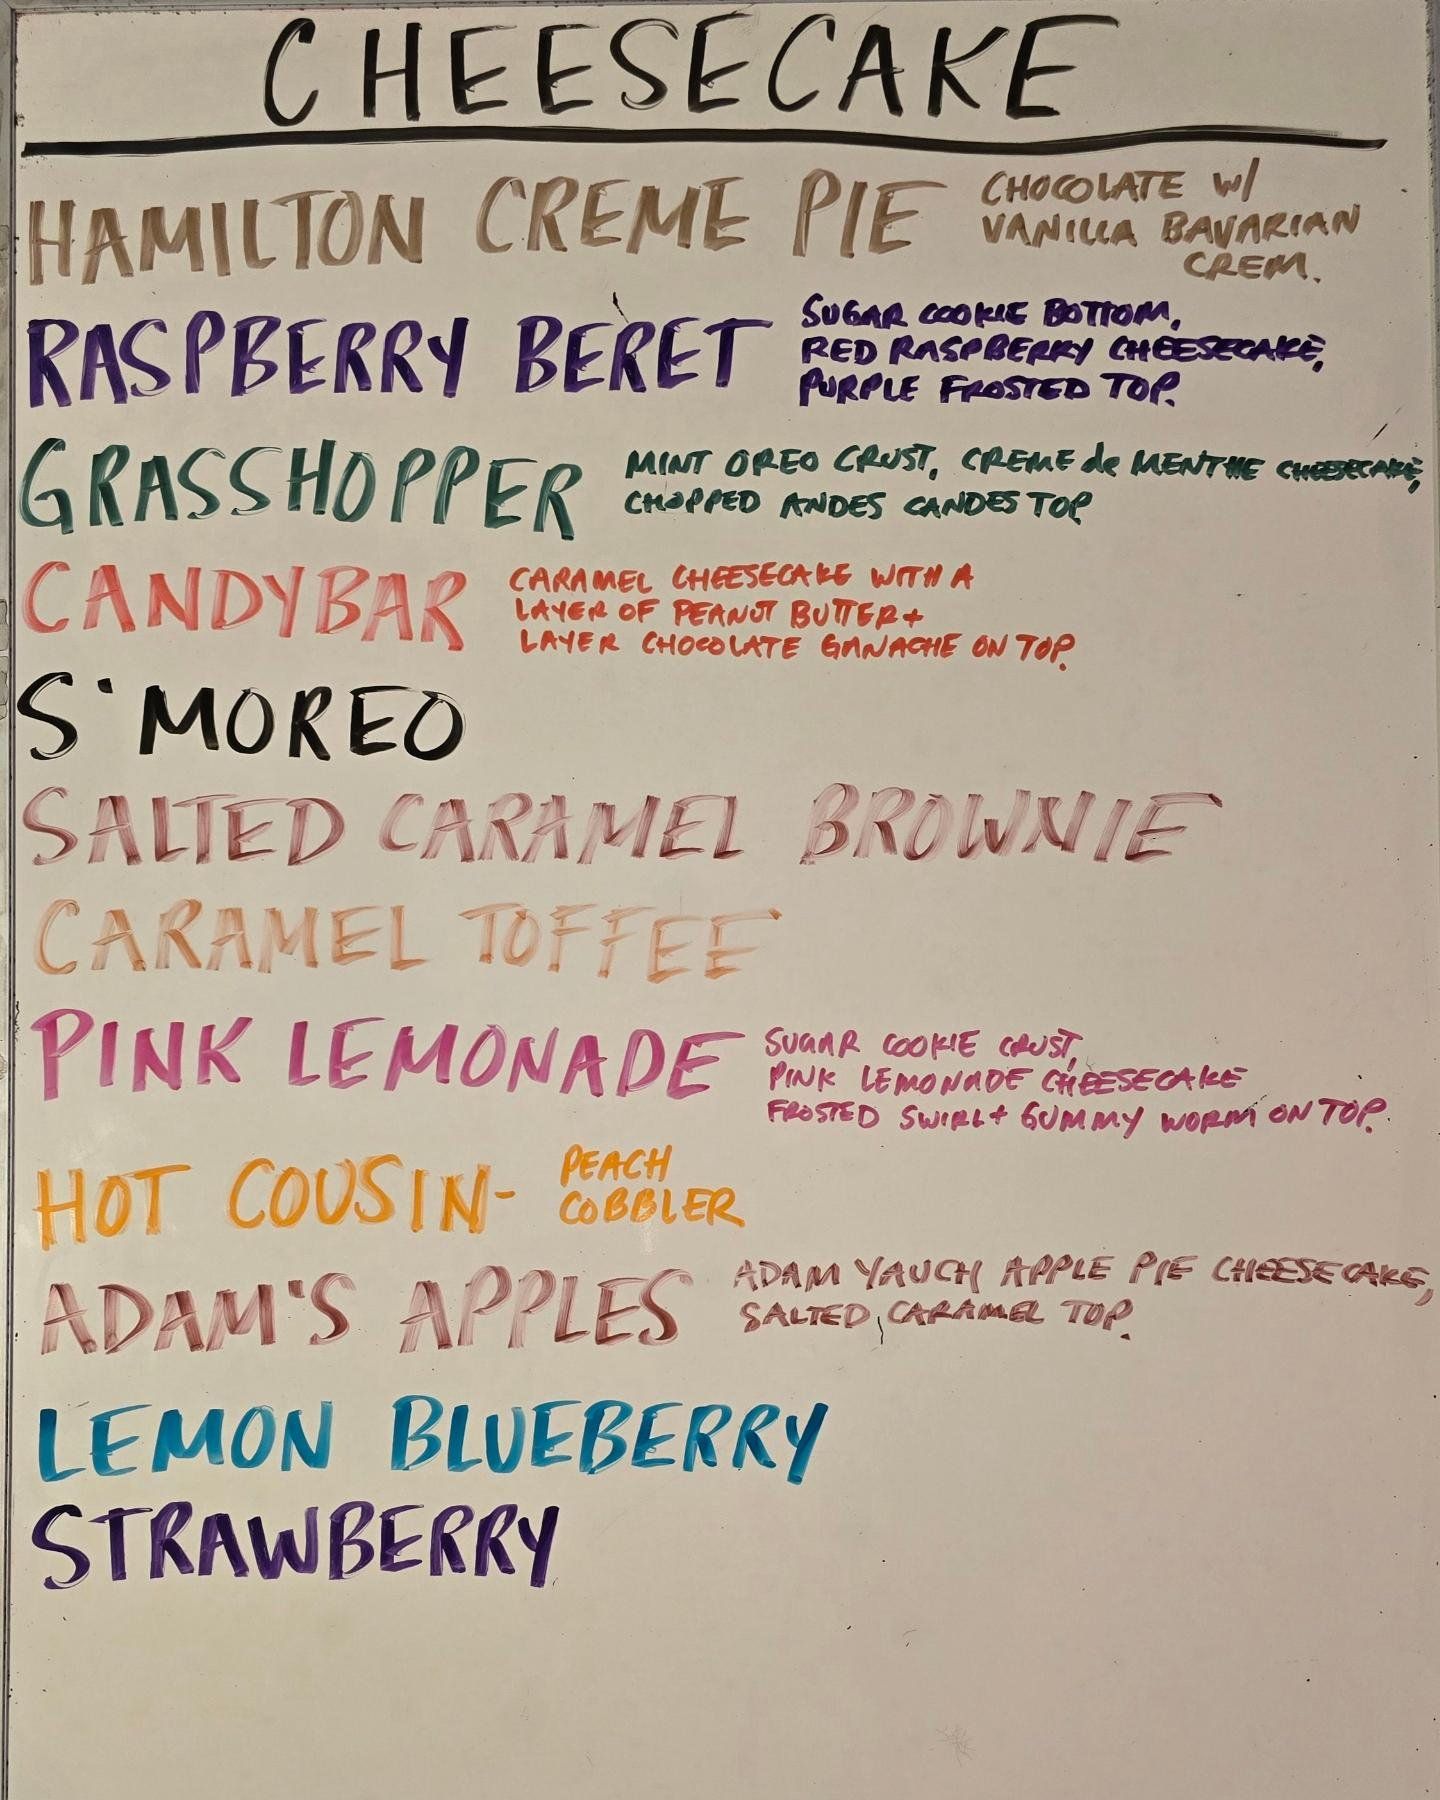 CHEESECAKE
HAMILTON CREME PIE CHOCOLATE W/
VANILLA BAVARIAN
CREM.
RASPBERRY BERET SUGAR COOKIE BOTTOM,
RED RASPBERRY CHEESECAKE,
PURPLE FROSTED TOP.
GRASSHOPPER MINT OREO CRUST, CREME de MENTHE CHEESECAKE,
CHOPPED ANDES CANDES TOP
CANDYBAR CARAMEL CHEESECAKE WITH A
LAYER OF PEANUT BUTTER+
LAYER CHOCOLATE GANACHE ON TOP.
S'MOREO
SALTED CARAMEL BROWNIE
CARAMEL TOFFEE
PINK LEMONADE SUGAR COOKIE CRUST,
PINK LEMONADE CHEESECAKE
FROSTED SWIRL+ GUMMY WORM ON TOP.
HOT COUSIN- PEACH
COBBLER
ADAM'S APPLES ADAM YAUCH APPLE PIE CHEESECAKE,
SALTED CARAMEL TOP.
LEMON BLUEBERRY
STRAWBERRY